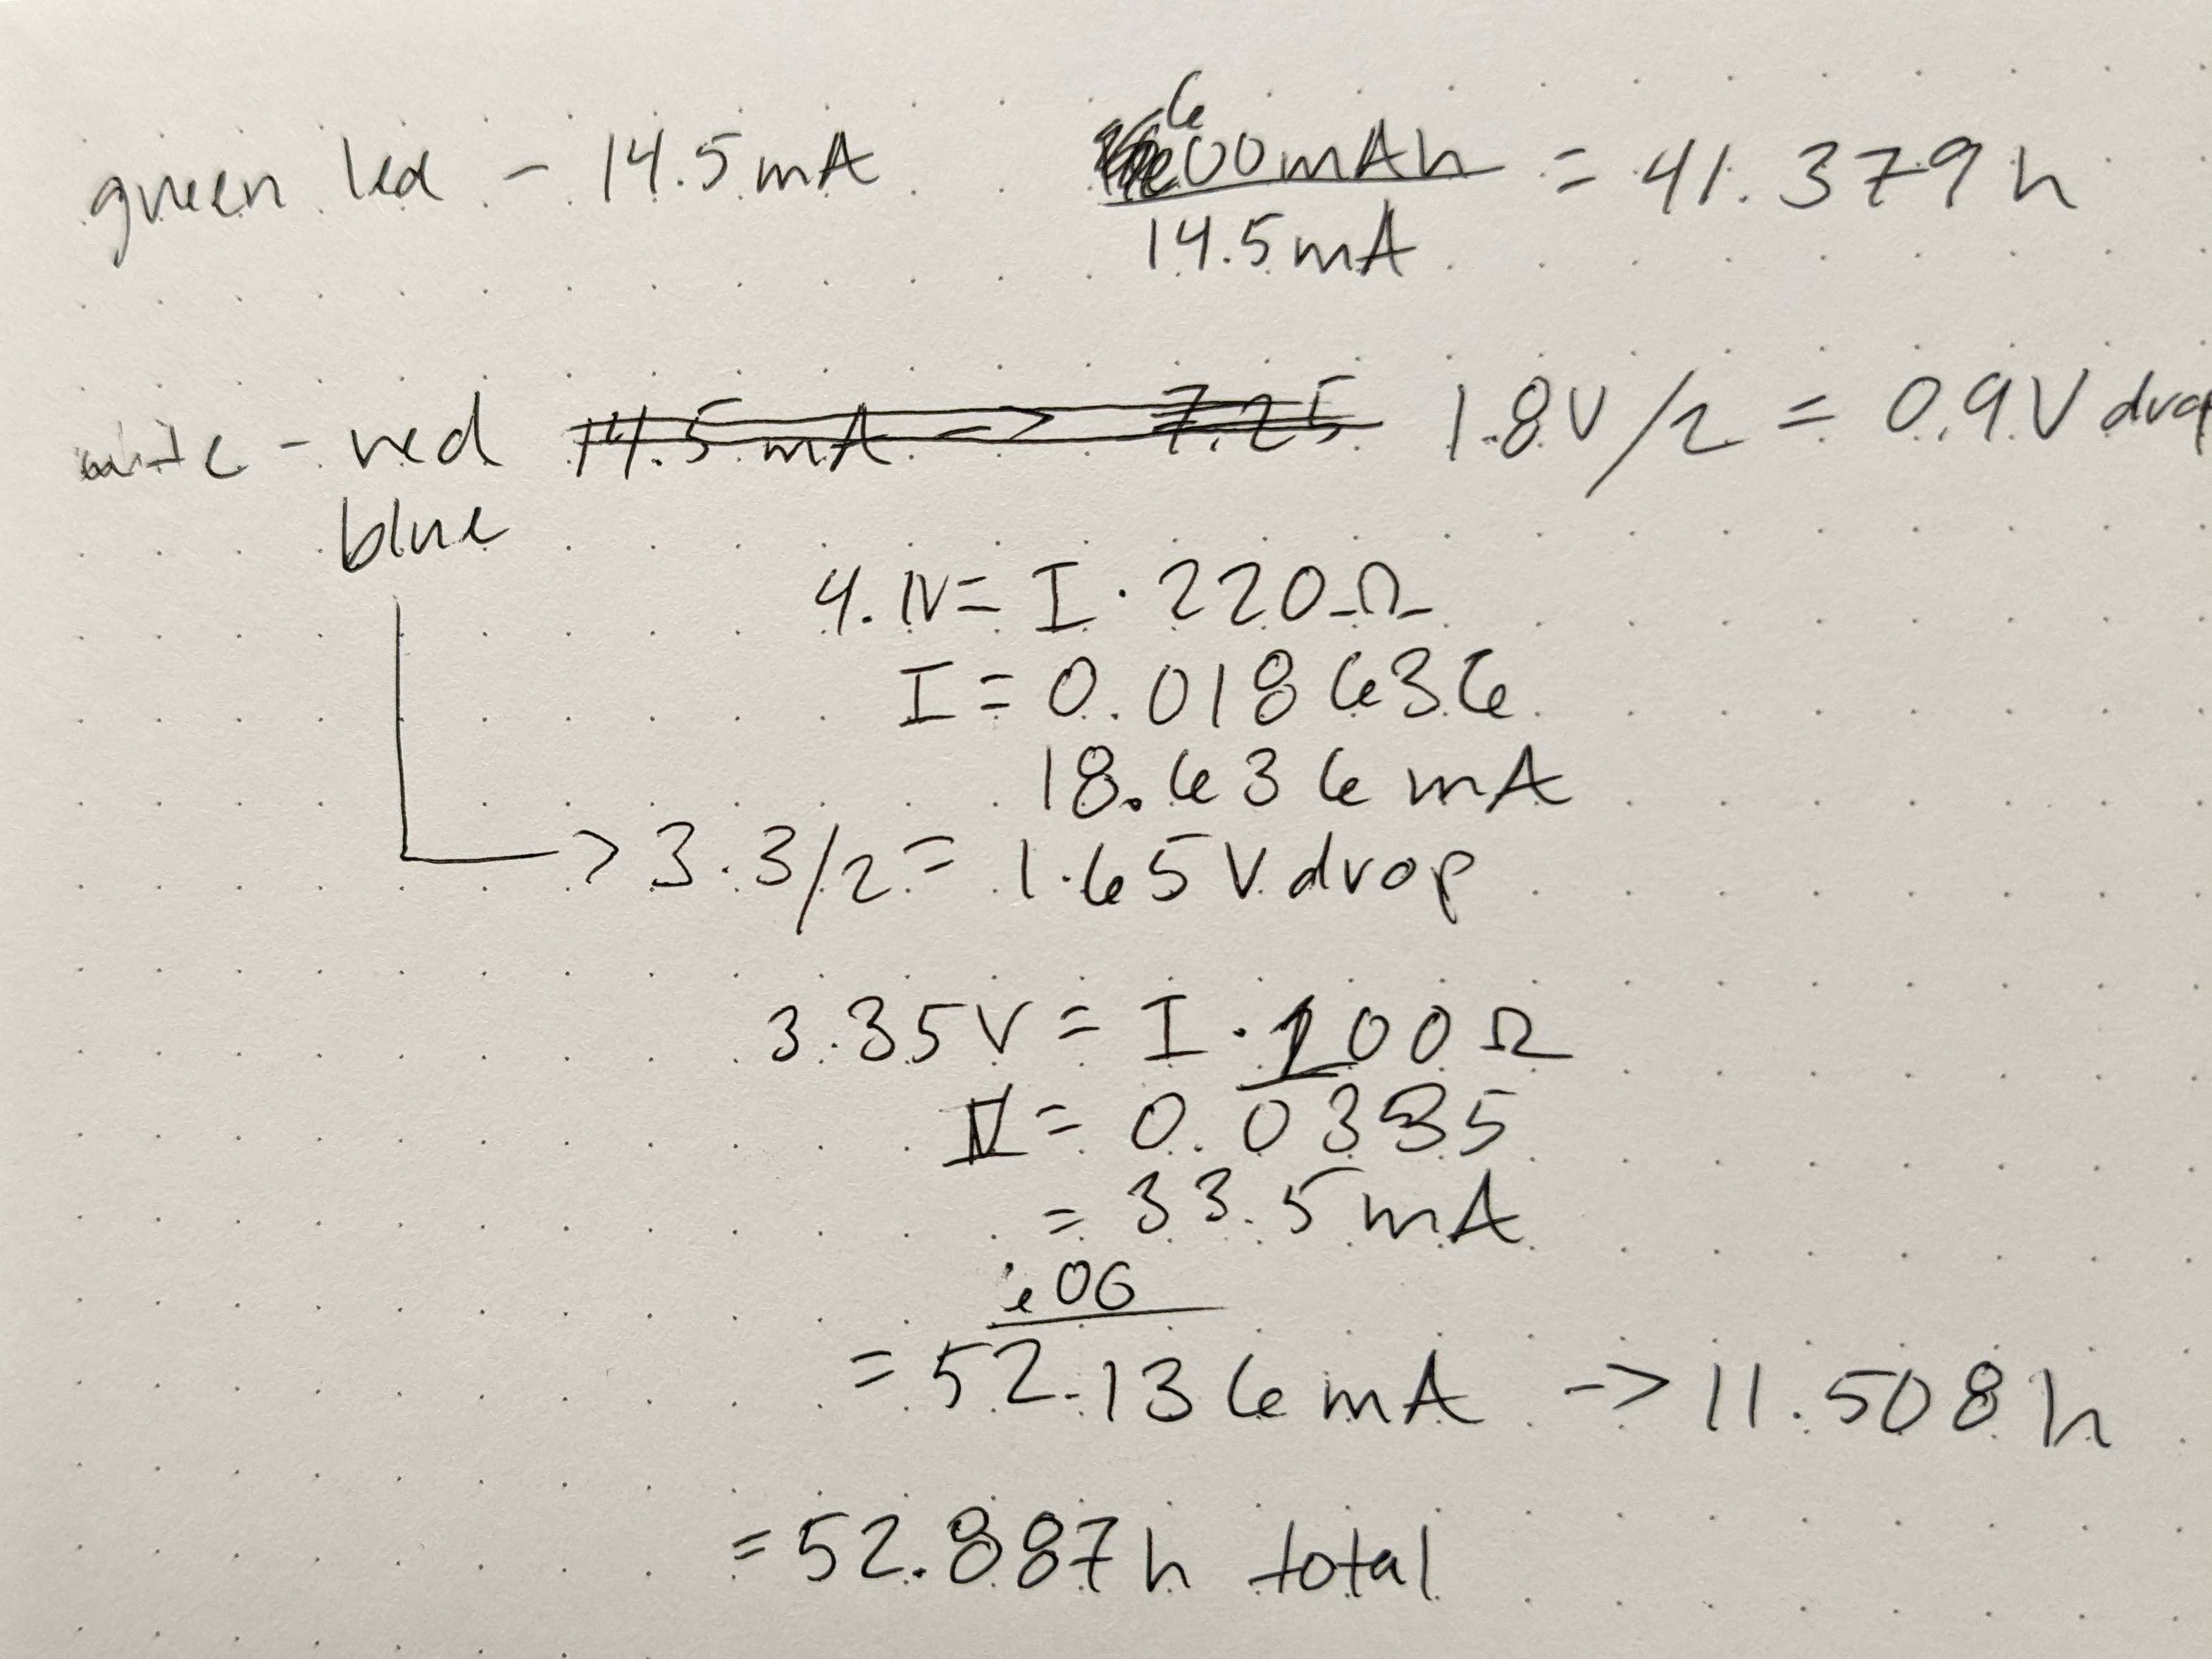 green led - 14.5mA 600mAh = 41.379h
14.5mA
white - red 14.5mA -> 7.25 1.8V/2 = 0.9V drop
blue
4.1V = I · 220Ω
I = 0.018636
18.636 mA
-> 3.3/2 = 1.65V drop
3.35V = I · 100Ω
I = 0.0335
= 33.5mA
600
= 52.136mA -> 11.508h
= 52.887h total